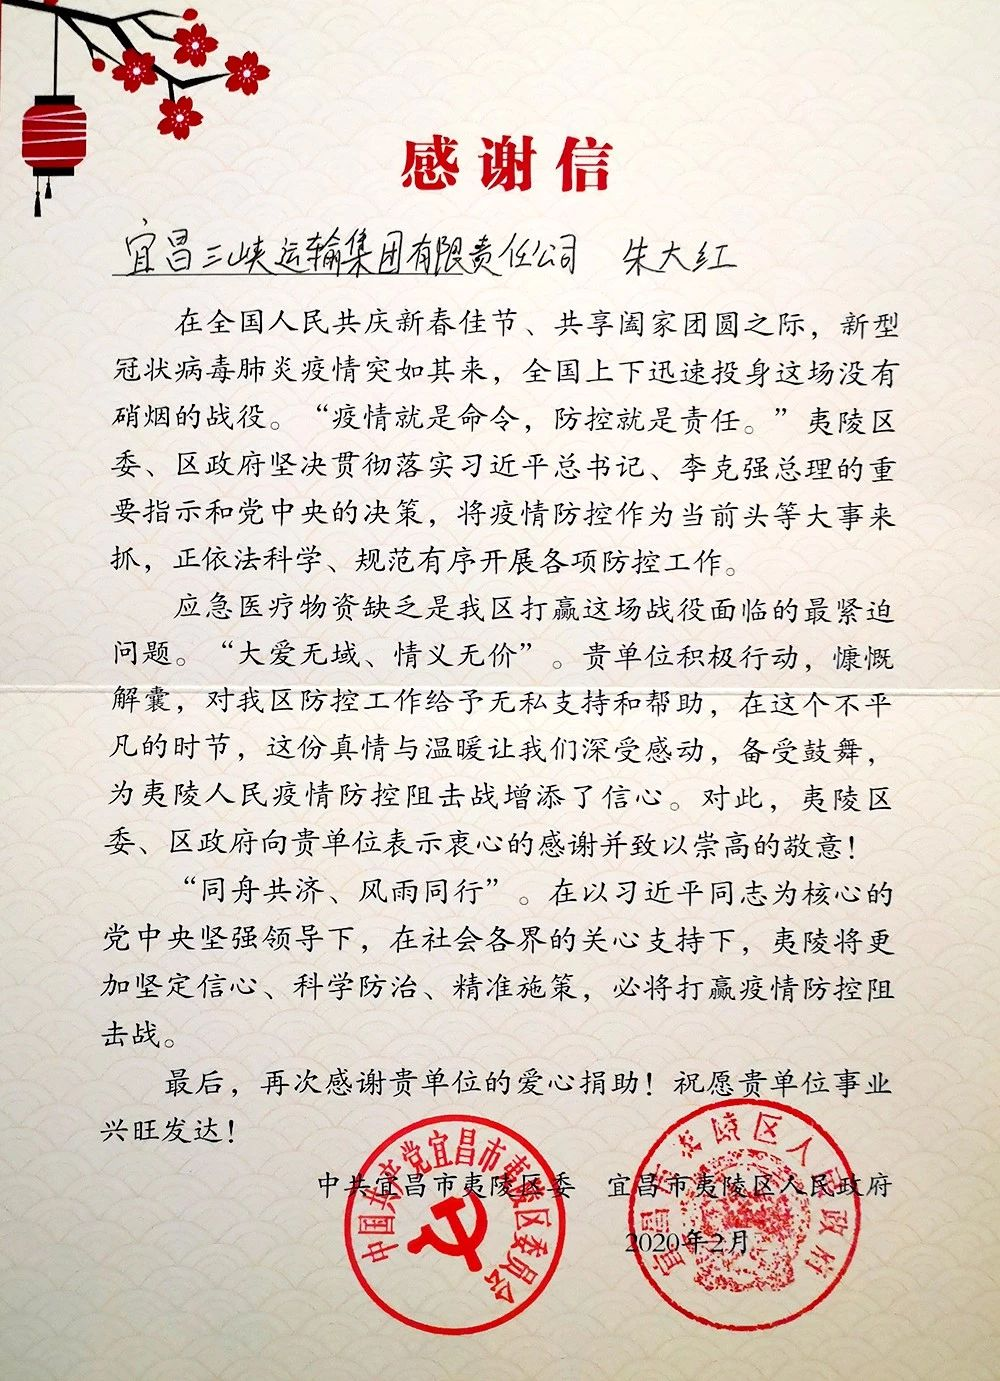 感谢信
宜昌三峡运输集团有限责任公司 朱大红
在全国人民共庆新春佳节、共享阖家团圆之际，新型
冠状病毒肺炎疫情突如其来，全国上下迅速投身这场没有
硝烟的战役。“疫情就是命令，防控就是责任。”夷陵区
委、区政府坚决贯彻落实习近平总书记、李克强总理的重
要指示和党中央的决策，将疫情防控作为当前头等大事来
抓，正依法科学、规范有序开展各项防控工作。
应急医疗物资缺乏是我区打赢这场战役面临的最紧迫
问题。“大爱无域、情义无价”。贵单位积极行动，慷慨
解囊，对我区防控工作给予无私支持和帮助，在这个不平
凡的时节，这份真情与温暖让我们深受感动，备受鼓舞，
为夷陵人民疫情防控阻击战增添了信心。对此，夷陵区
委、区政府向贵单位表示衷心的感谢并致以崇高的敬意！
“同舟共济、风雨同行”。在以习近平同志为核心的
党中央坚强领导下，在社会各界的关心支持下，夷陵将更
加坚定信心、科学防治、精准施策，必将打赢疫情防控阻
击战。
最后，再次感谢贵单位的爱心捐助！祝愿贵单位事业
兴旺发达！
中共宜昌市夷陵区委 宜昌市夷陵区人民政府
2020年2月
中国共产党宜昌市夷陵区委员会
宜昌市夷陵区人民政府